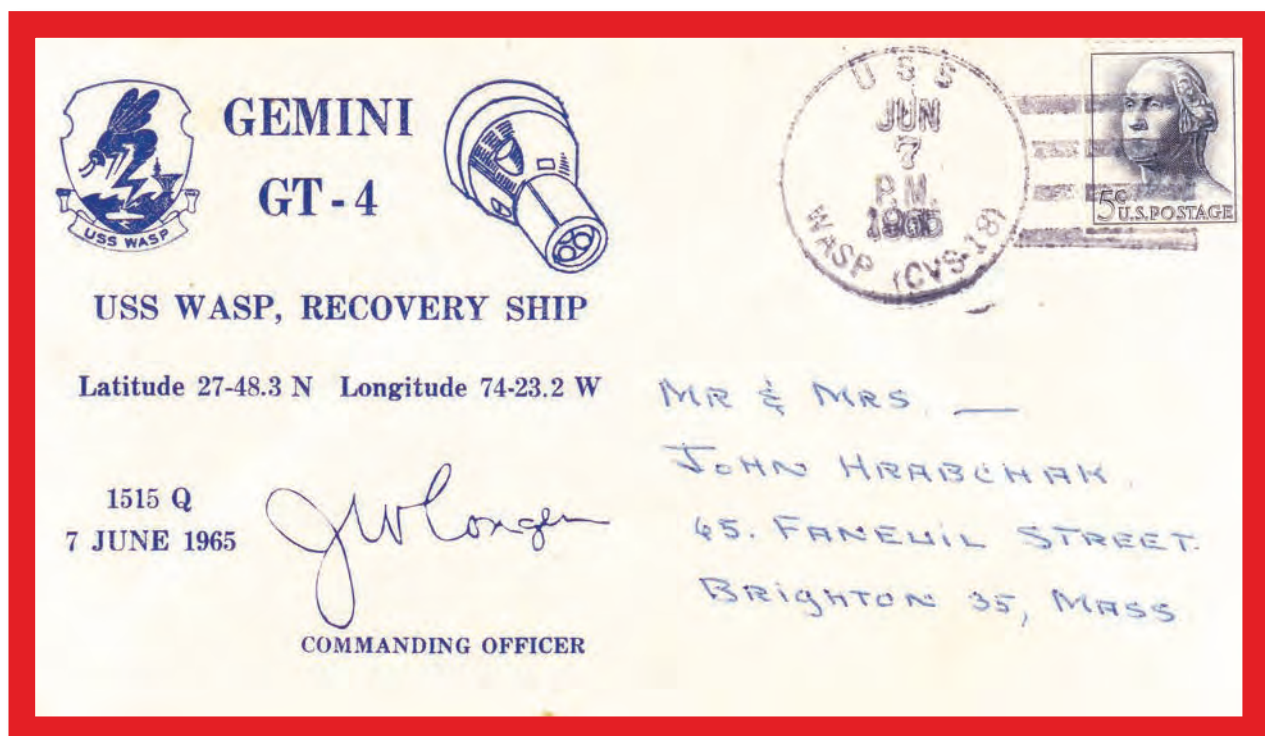 USS WASP
GEMINI
GT-4
USS WASP, RECOVERY SHIP
Latitude 27-48.3 N Longitude 74-23.2 W
1515 Q
7 JUNE 1965
J W Conger
COMMANDING OFFICER
USS
JUN
7
P.M.
1965
WASP (CVS-18)
5¢ U.S. POSTAGE
MR & MRS. —
JOHN HRABCHAK.
65. FANEUIL STREET.
BRIGHTON 35, MASS